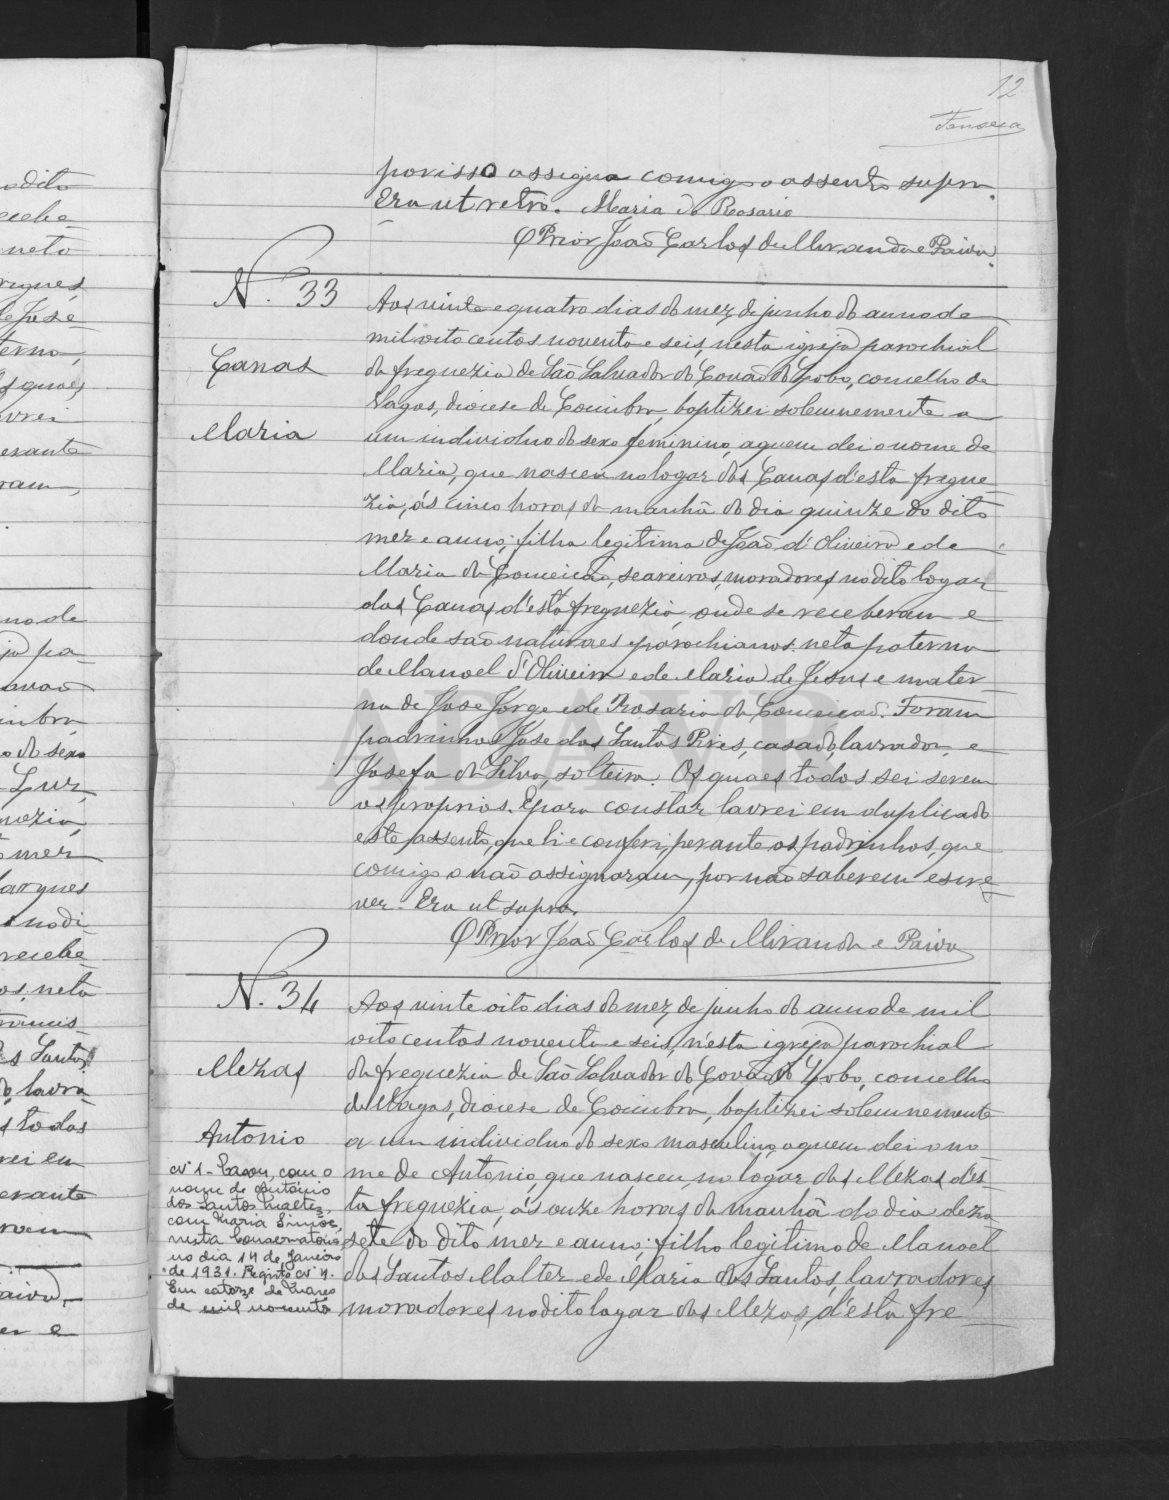 12
Fonseca
porisso assigna comigo o assento supra
Era ut retro. Maria do Rosario
O Prior João Carlos de Miranda e Paiva.
N. 33
Canas
Maria
Aos vinte e quatro dias do mez de junho do anno de
mil oito centos noventa e seis, nesta igreja parochial
da freguezia de São Salvador do Covão do Lobo, concelho de
Vagos, diocese de Coimbra, baptizei solemnemente a
um individuo do sexo feminino, a quem dei o nome de
Maria, que nasceu no logar das Canas d'esta fregue-
zia, ás cinco horas da manhã do dia quinze do dito
mez e anno; filha legitima de João d'Oliveira e de
Maria da Conceicão, seareiros, moradores no dito logar
das Canas d'esta freguezia, onde se receberam e
donde são naturaes e parochianos. neta paterna
de Manoel d'Oliveira e de Maria de Jesus e mater-
na de Jose Jorge e de Rosaria da Conceicaõ. Foram
padrinhos Jose dos Santos Pires, casado, lavrador, e
Josefa da Silva, solteira. Os quaes todos sei serem
os proprios. E para constar lavrei em duplicado
este assento, que li e conferi, perante os padrinhos, que
comigo o não assignaram, por não saberem escre-
ver. Era ut supra.
O Prior João Carlos de Miranda e Paiva
N. 34
Mezas
Antonio
Aos vinte oito dias do mez de junho do anno de mil
oito centos noventa e seis, n'esta igreja parochial
da freguezia de São Salvador do Covão do Lobo, concelho
de Vagos, diocese de Coimbra, baptizei solemnemente
a um individuo do sexo masculino, a quem dei o no-
me de Antonio, que nasceu no logar das Mezas d'es-
ta freguezia, ás onze horas da manhã do dia deza
sete do dito mez e anno; filho legitimo de Manoel
dos Santos Malter e de Maria dos Santos, lavradores,
moradores no dito logar das Mezas, d'esta fre-
Nº 1 - Casou, com o
nome de António
dos Santos Malter,
com Maria Simões,
nesta Conservatória
no dia 14 de Janeiro
de 1931. Registo Nº 4.
Em catorze de Março
de mil novecento